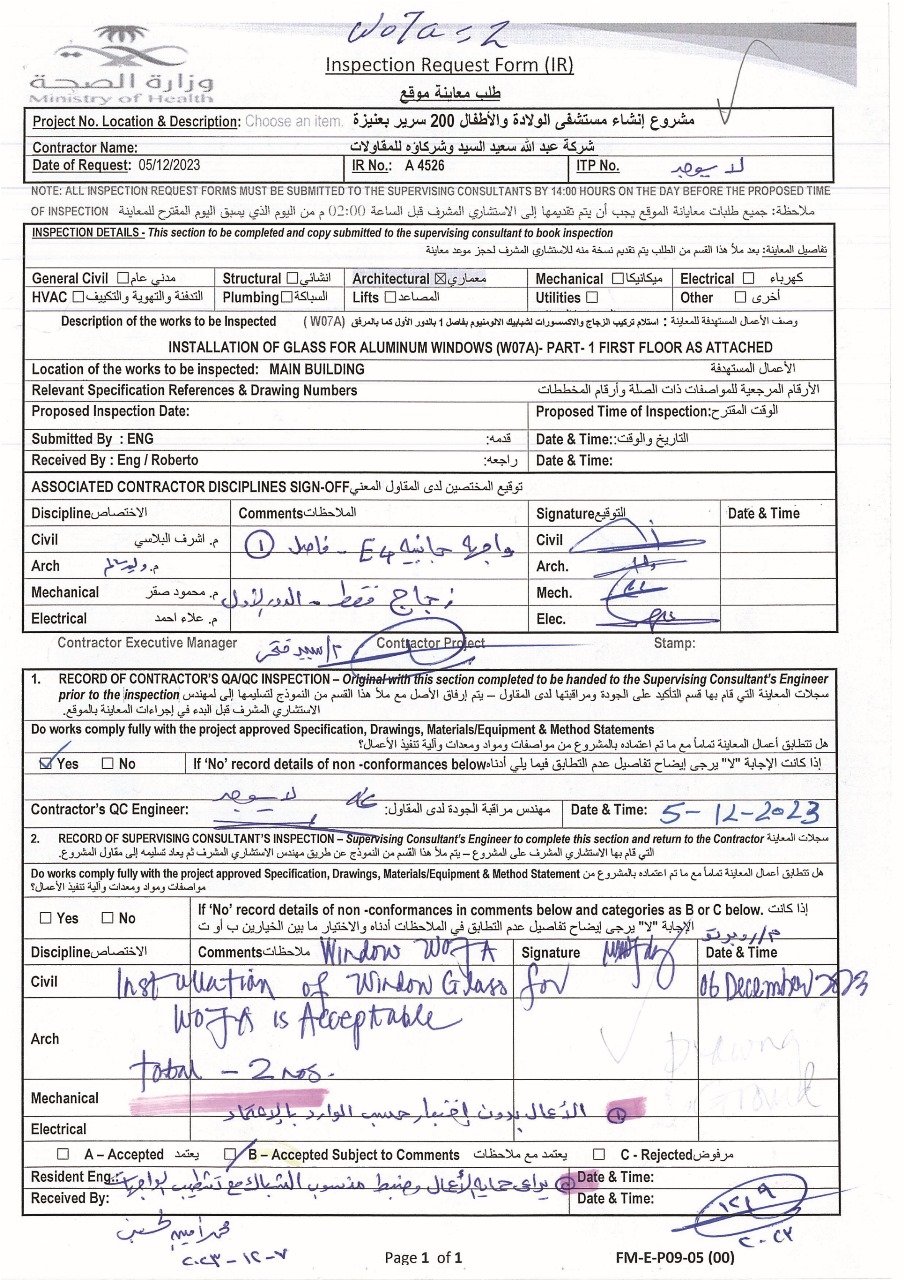 W07A = 2
Inspection Request Form (IR)
طلب معاينة موقع
وزارة الصحة
Ministry of Health
Project No. Location & Description: Choose an item. مشروع إنشاء مستشفى الولادة والأطفال 200 سرير بعنيزة
Contractor Name: شركة عبد الله سعيد السيد وشركاؤه للمقاولات
Date of Request: 05/12/2023 IR No.: A 4526 ITP No. لا يوجد
NOTE: ALL INSPECTION REQUEST FORMS MUST BE SUBMITTED TO THE SUPERVISING CONSULTANTS BY 14:00 HOURS ON THE DAY BEFORE THE PROPOSED TIME
OF INSPECTION ملاحظة: جميع طلبات معايانة الموقع يجب أن يتم تقديمها إلى الاستشاري المشرف قبل الساعة 02:00 م من اليوم الذي يسبق اليوم المقترح للمعاينة
INSPECTION DETAILS - This section to be completed and copy submitted to the supervising consultant to book inspection
تفاصيل المعاينة: بعد ملأ هذا القسم من الطلب يتم تقديم نسخة منه للاستشاري المشرف لحجز موعد معاينة
General Civil ☐ مدني عام Structural ☐ انشائي Architectural ☒ معماري Mechanical ☐ ميكانيكا Electrical ☐ كهرباء
HVAC ☐ التدفئة والتهوية والتكييف Plumbing ☐ السباكة Lifts ☐ المصاعد Utilities ☐ Other ☐ أخرى
Description of the works to be Inspected وصف الأعمال المستهدفة للمعاينة : استلام تركيب الزجاج والاكسسورات لشبابيك الالومنيوم بفاصل 1 بالدور الأول كما بالمرفق (W07A)
INSTALLATION OF GLASS FOR ALUMINUM WINDOWS (W07A)- PART- 1 FIRST FLOOR AS ATTACHED
Location of the works to be inspected: MAIN BUILDING الأعمال المستهدفة
Relevant Specification References & Drawing Numbers الأرقام المرجعية للمواصفات ذات الصلة وأرقام المخططات
Proposed Inspection Date: Proposed Time of Inspection: الوقت المقترح
Submitted By : ENG قدمه: Date & Time:: التاريخ والوقت
Received By : Eng / Roberto راجعه: Date & Time:
ASSOCIATED CONTRACTOR DISCIPLINES SIGN-OFF توقيع المختصين لدى المقاول المعني
Discipline الاختصاص Comments الملاحظات Signature التوقيع Date & Time
Civil م. اشرف البلاسي واجهة جانبية E4 - فاصل ① Civil
Arch م. Arch.
Mechanical م. محمود صقر زجاج فقط - الدور الأول Mech.
Electrical م. علاء احمد Elec.
Contractor Executive Manager Contractor Project Stamp:
1. RECORD OF CONTRACTOR'S QA/QC INSPECTION – Original with this section completed to be handed to the Supervising Consultant's Engineer
prior to the inspection سجلات المعاينة التي قام بها قسم التأكيد على الجودة ومراقبتها لدى المقاول – يتم إرفاق الأصل مع ملأ هذا القسم من النموذج لتسليمها إلى لمهندس
الاستشاري المشرف قبل البدء في إجراءات المعاينة بالموقع.
Do works comply fully with the project approved Specification, Drawings, Materials/Equipment & Method Statements
هل تتطابق أعمال المعاينة تماماً مع ما تم اعتماده بالمشروع من مواصفات ومواد ومعدات وآلية تنفيذ الأعمال؟
☑ Yes ☐ No If 'No' record details of non -conformances below إذا كانت الإجابة "لا" يرجى إيضاح تفاصيل عدم التطابق فيما يلي أدناه
لا يوجد
Contractor's QC Engineer: مهندس مراقبة الجودة لدى المقاول: Date & Time: 5-12-2023
2. RECORD OF SUPERVISING CONSULTANT'S INSPECTION – Supervising Consultant's Engineer to complete this section and return to the Contractor سجلات المعاينة
التي قام بها الاستشاري المشرف على المشروع – يتم ملأ هذا القسم من النموذج عن طريق مهندس الاستشاري المشرف ثم يعاد تسليمه إلى مقاول المشروع.
Do works comply fully with the project approved Specification, Drawings, Materials/Equipment & Method Statement هل تتطابق أعمال المعاينة تماماً مع ما تم اعتماده بالمشروع من
مواصفات ومواد ومعدات وآلية تنفيذ الأعمال؟
☐ Yes ☐ No If 'No' record details of non -conformances in comments below and categories as B or C below. إذا كانت
الإجابة "لا" يرجى إيضاح تفاصيل عدم التطابق في الملاحظات أدناه والاختيار ما بين الخيارين ب أو ت
م/روبرتو
Discipline الاختصاص Comments ملاحظات Window W07A Signature Date & Time
Civil Installation of Window Glass for 06 December 2023
W07A is Acceptable
Arch
Total - 2 nos.
Mechanical
① الأعمال بدون إختبار حسب الوارد بالإعتماد
Electrical
☐ A – Accepted يعتمد ☐ B – Accepted Subject to Comments يعتمد مع ملاحظات ☐ C - Rejected مرفوض
Resident Eng.: ② يراعى حماية الأعمال وضبط منسوب الشباك مع تشطيب الواجهات Date & Time:
Received By: Date & Time: ١٢/٩
٢٠٢٣
٢٠٢٣-١٢-٧
Page 1 of 1 FM-E-P09-05 (00)